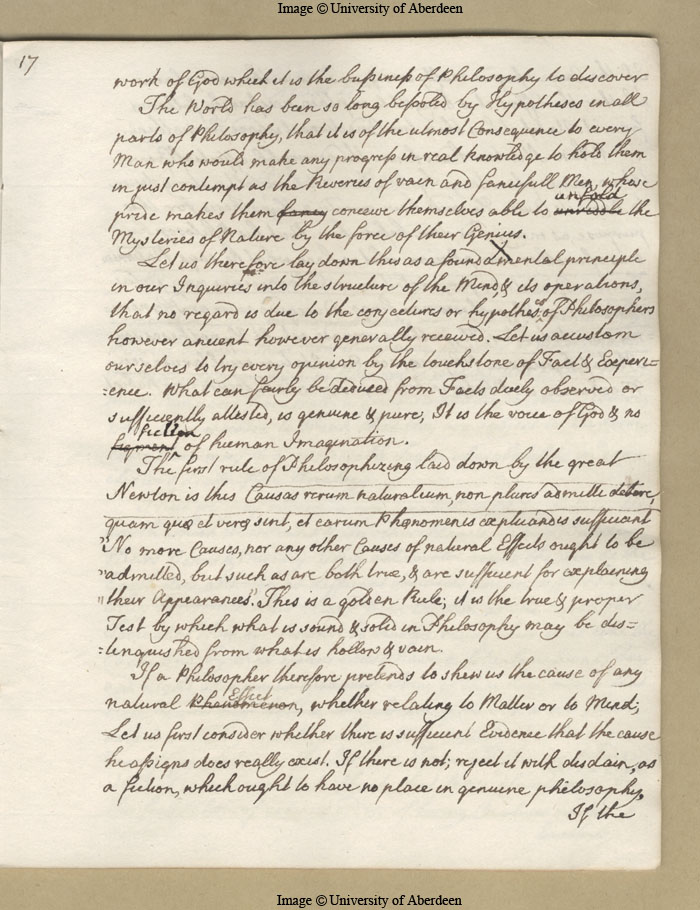 Image © University of Aberdeen
17
work of God which it is the bussiness of Philosophy to discover
The World has been so long besooted by Hypotheses in all
parts of Philosophy, that it is of the utmost Consequence to every
Man who would make any progress in real knowledge to hold them
in just contempt as the Reveries of vain and fancifull Men, whose
unfold
pride makes them fancy conceive themselves able to unriddle the
Mysteries of Nature by the force of their Genius.
Let us therefore lay down this as a foundamental principle
in our Inquiries into the structure of the Mind, & its operations,
that no regard is due to the conjectures or hypotheses of Philosophers
however ancient however generally received. Let us accustom
ourselves to try every opinion by the touchstone of Fact & Experi=
=ence. What can fairly be deduced from Facts duely observed or
sufficiently attested, is genuine & pure, It is the voice of God & no
fiction
figment of human Imagination.
The first rule of Philosophizing laid down by the great
Newton is this Causas rerum naturalium, non plures admitti debere,
quam quæ et veræ sint, et earum Phænomenis explicandis sufficiant
"No more Causes, nor any other Causes of natural Effects ought to be
"admitted, but such as are both true, & are sufficient for explaining
"their Appearances". This is a golden Rule; it is the true & proper
Test by which what is sound & solid in Philosophy may be dis=
=tinguished from what is hollow & vain.
If a Philosopher therefore pretends to shew us the cause of any
Effect
natural Phenomenon, whether relating to Matter or to Mind;
Let us first consider whether there is sufficient Evidence that the cause
he assigns does really exist. If there is not; reject it with disdain, as
a fiction, which ought to have no place in genuine philosophy.
If the
Image © University of Aberdeen